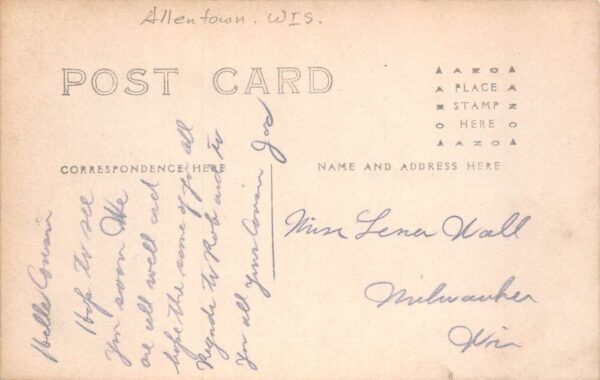 Allentown. WIS.
POST CARD
AZO
PLACE
STAMP
HERE
AZO
CORRESPONDENCE HERE
NAME AND ADDRESS HERE
Hello Cousin
Hope to see
you soon We
are all well and
hope the same of you all
Regards to Rob and to
you all your Cousin Joe
Miss Lener Wall
Milwaukee
Wis